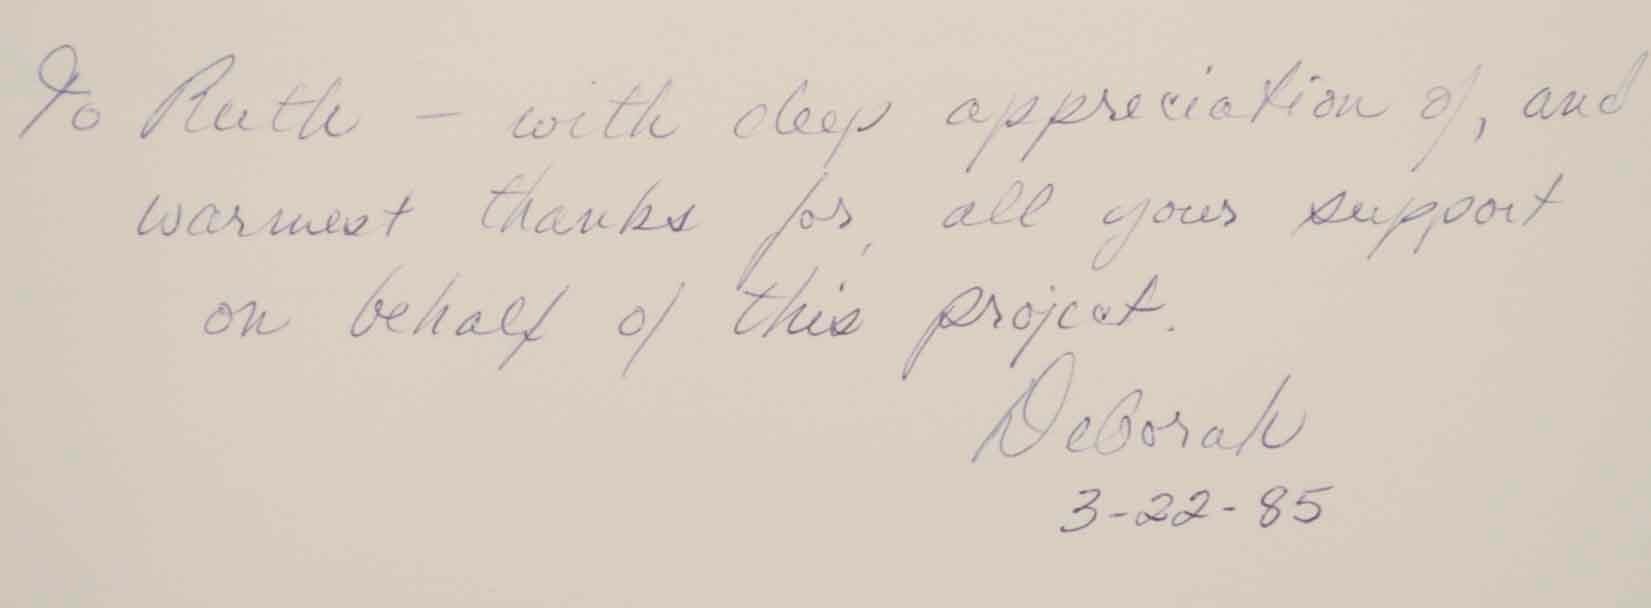 To Ruth – with deep appreciation of, and
warmest thanks for, all your support
on behalf of this project.
Deborah
3-22-85